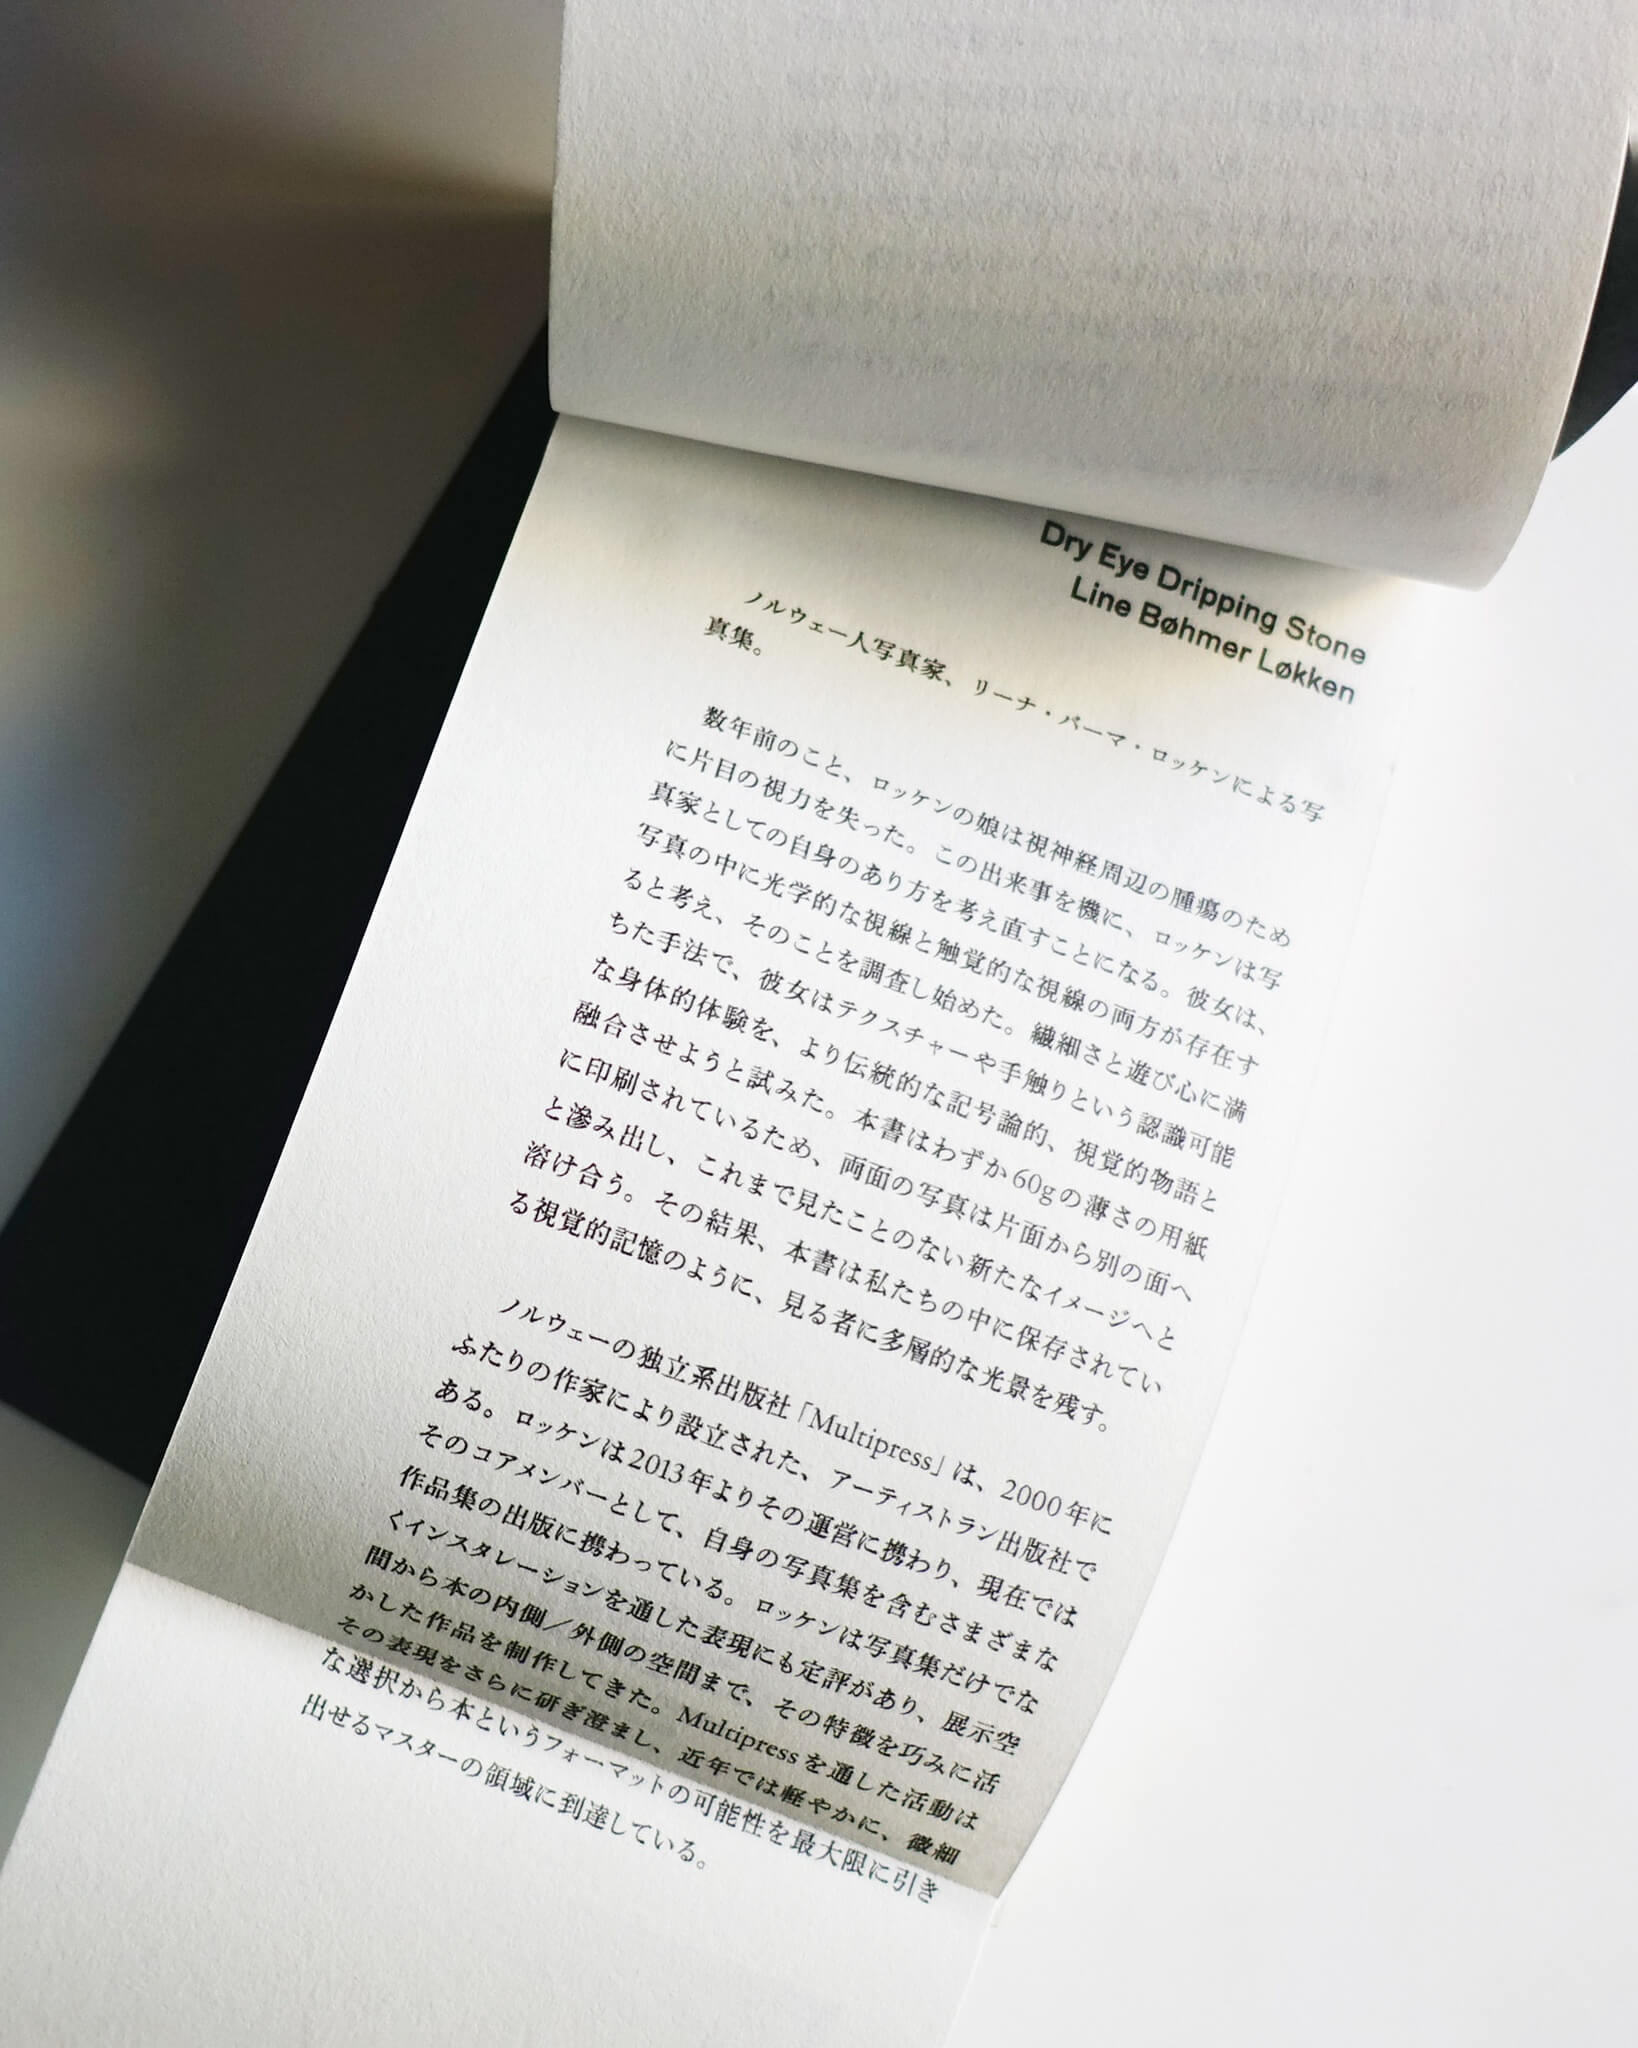 Dry Eye Dripping Stone
Line Bøhmer Løkken
ノルウェー人写真家、リーナ・バーマ・ロッケンによる写
真集。
数年前のこと、ロッケンの娘は視神経周辺の腫瘍のため
に片目の視力を失った。この出来事を機に、ロッケンは写
真家としての自身のあり方を考え直すことになる。彼女は、
写真の中に光学的な視線と触覚的な視線の両方が存在す
ると考え、そのことを調査し始めた。繊細さと遊び心に満
ちた手法で、彼女はテクスチャーや手触りという認識可能
な身体的体験を、より伝統的な記号論的、視覚的物語と
融合させようと試みた。本書はわずか60gの薄さの用紙
に印刷されているため、両面の写真は片面から別の面へ
と滲み出し、これまで見たことのない新たなイメージへと
溶け合う。その結果、本書は私たちの中に保存されてい
る視覚的記憶のように、見る者に多層的な光景を残す。
ノルウェーの独立系出版社「Multipress」は、2000年に
ふたりの作家により設立された、アーティストラン出版社で
ある。ロッケンは2013年よりその運営に携わり、現在では
そのコアメンバーとして、自身の写真集を含むさまざまな
作品集の出版に携わっている。ロッケンは写真集だけでな
くインスタレーションを通した表現にも定評があり、展示空
間から本の内側／外側の空間まで、その特徴を巧みに活
かした作品を制作してきた。Multipressを通した活動は
その表現をさらに研ぎ澄まし、近年では軽やかに、微細
な選択から本というフォーマットの可能性を最大限に引き
出せるマスターの領域に到達している。